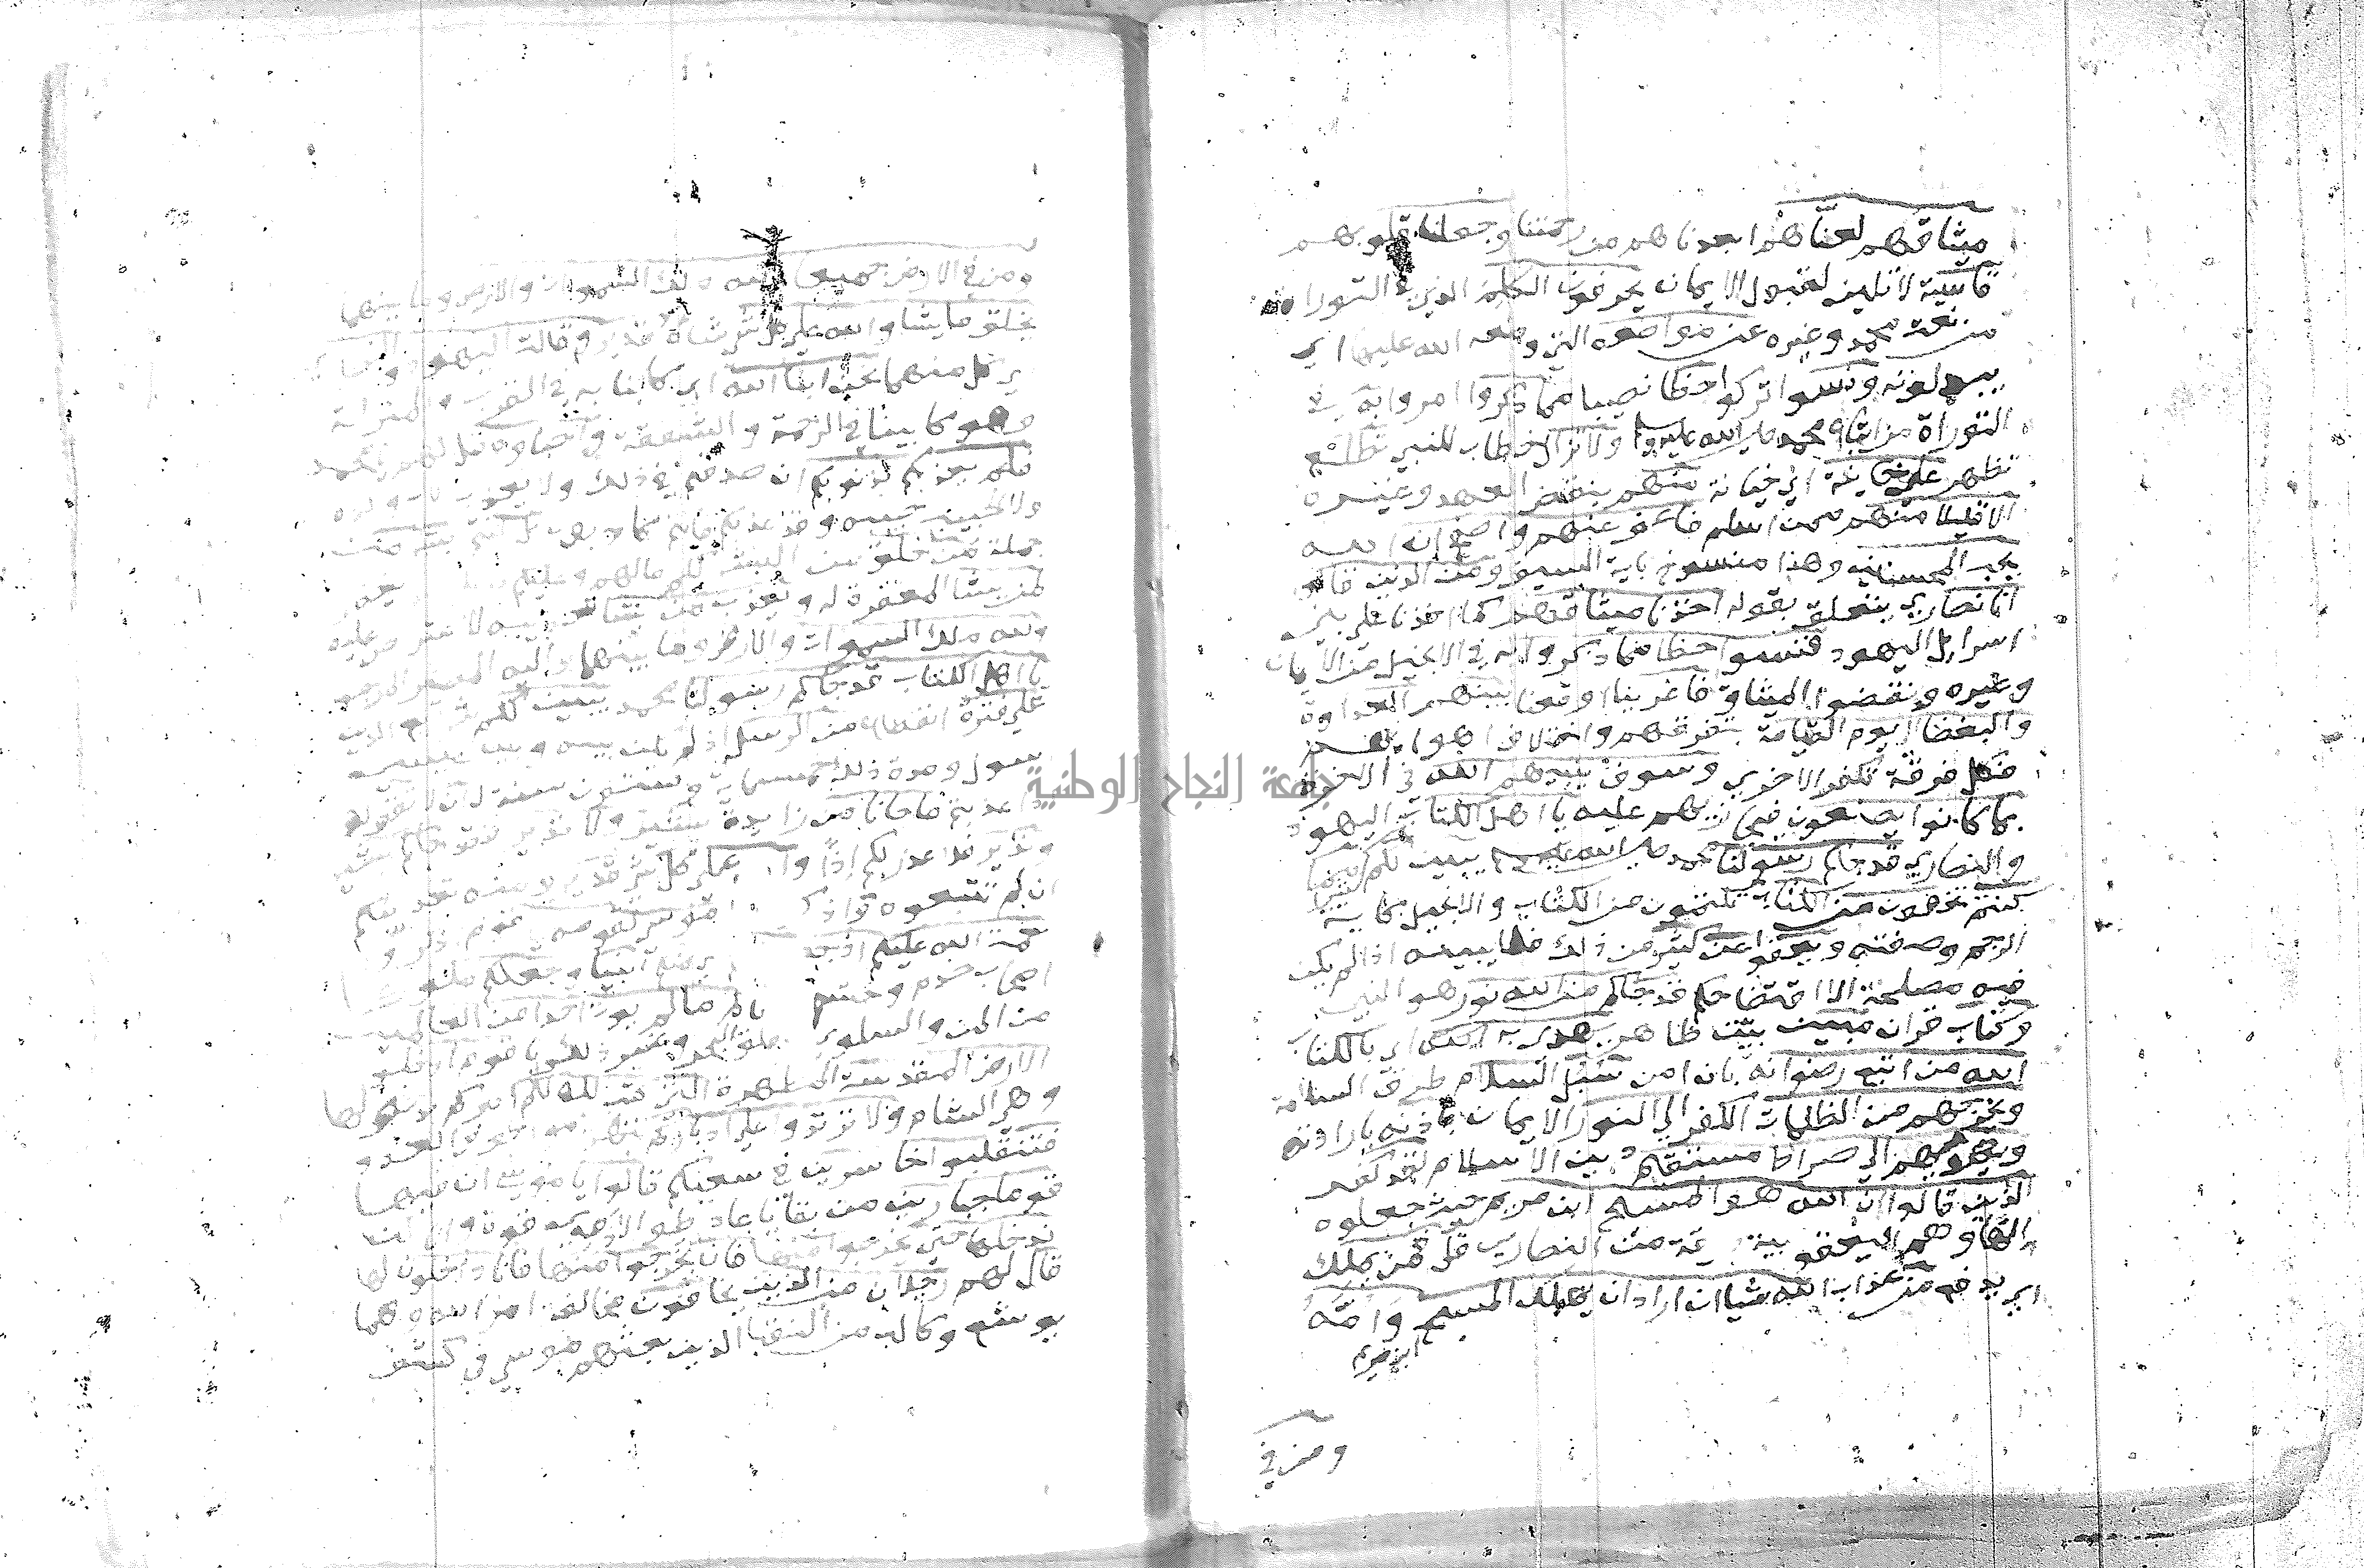 ميثاقهم لعناهم ابعدناهم من رحمتنا وجعلنا قلوبهم
قاسية لا تلين لقبول الايمان يحرفون الكلم الذي في التوراة
من نعت محمد وغيره عن مواضعه التي وضعه الله عليها اي
يبدلونه ونسوا تركوا حظا نصيبا مما ذكروا امروا به في
التوراة من اتباع محمد صلى الله عليه ولا تزال خطاب للنبي تطلع
تظهر على خاينة اي خيانة منهم بنقض العهد وغيره
الا قليلا منهم ممن اسلم فاعف عنهم واصفح ان الله
يحب المحسنين وهذا منسوخ باية السيف ومن الذين قالوا
انا نصاري يتعلق بقوله اخذنا ميثاقهم كما اخذنا على بني
اسرايل اليهود فنسوا حظا مما ذكروا به في الانجيل من الايمان
وغيره ونقضوا الميثاق فاغرينا اوقعنا بينهم العداوة
والبغضا الي يوم القيامة بتفرقهم واختلاف اهوايهم
فكل فرقة تكفر الاخري وسوف ينبيهم الله في الاخرة
بما كانوا يصنعون فيجازيهم عليه يا اهل الكتاب اليهود
والنصاري قد جاكم رسولنا محمد صلى الله عليه يبين لكم كثيرا مما
كنتم تخفون من الكتاب تكتمون من الكتاب والانجيل كاية
الرجم وصفته ويعفوا عن كثير من ذلك فلا يبينه اذا لم يكن
فيه مصلحة الا افتضاحكم قد جاكم من الله نور هو النبي
وكتاب قران مبين بين ظاهر يهدي به الله اي بالكتاب
الله من اتبع رضوانه بان امن سبل السلام طرق السلامة
ويخرجهم من الظلمات الكفر الي النور الايمان باذنه بارادته
ويهديهم الي صراط مستقيم دين الاسلام لقد كفر
الذين قالوا ان الله هو المسيح ابن مريم حيث جعلوه
الها وهم اليعقوبية من النصاري قل فمن يملك
اي يدفع من عذاب الله شيا ان اراد ان يهلك المسيح وامه
ابن مريم
ومن في
ومن في الارض جميعا ولله ملك السموات والارض وما بينهما
يخلق ما يشا والله على كل شي شاه قدير وقالت اليهود والنصاري
اي كل منهما نحن ابنا الله اي كابنايه في القرب والمنزلة
وهو كابينا في الرحمة والشفقة واحباوه قل لهم يا محمد
فلم يعذبكم بذنوبكم ان صدقتم في ذلك ولا يعذب الاب ولده
ولا الحبيب حبيبه وقد عذبكم فانتم كاذبون بل انتم بشر ممن
جملة من خلق من البشر لكم ما لهم وعليكم
لمن يشا المغفرة له ويعذب من يشا تعذيبه لا اعتراض عليه
ولله ملك السموات والارض وما بينهما واليه المصير المرجع
يا اهل الكتاب قد جاكم رسولنا محمد يبين لكم الدين
على فترة انقطاع من الرسل اذ لم يكن بينه وبين عيسى
رسول ومدة ذلك خمسماية وستون سنة لان لا تقولوا
اذا عذبتم ما جانا من زايدة بشير ولا نذير فقد جاكم بشير
ونذير فلا عذر لكم اذا والله على كل شي قدير ومنه تعذيبكم
ان لم تتبعوه واذكر موسى لقومه يا قوم اذكروا
نعمة الله عليكم اذ جعل فيكم انبيا وجعلكم ملوكا
اصحاب خدم وحشم واتاكم ما لم يوت احدا من العالمين
من المن والسلوي وفلق البحر وغير ذلك يا قوم ادخلوا
الارض المقدسة المطهرة التي كتب الله لكم امركم بدخولها
وهي الشام ولا ترتدوا على ادباركم العدو
فتنقلبوا خاسرين في سعيكم قالوا يا موسى ان فيها
قوما جبارين من بقايا عاد طوالا ذوي قوة وانا لن
ندخلها حتي يخرجوا منها فان يخرجوا منها فانا داخلون لها
قال لهم رجلان من الذين يخافون مخالفة امر الله وهما
يوشع وكالب من النقبا الذين بعثهم موسى في كشف
جامعة النجاح الوطنية